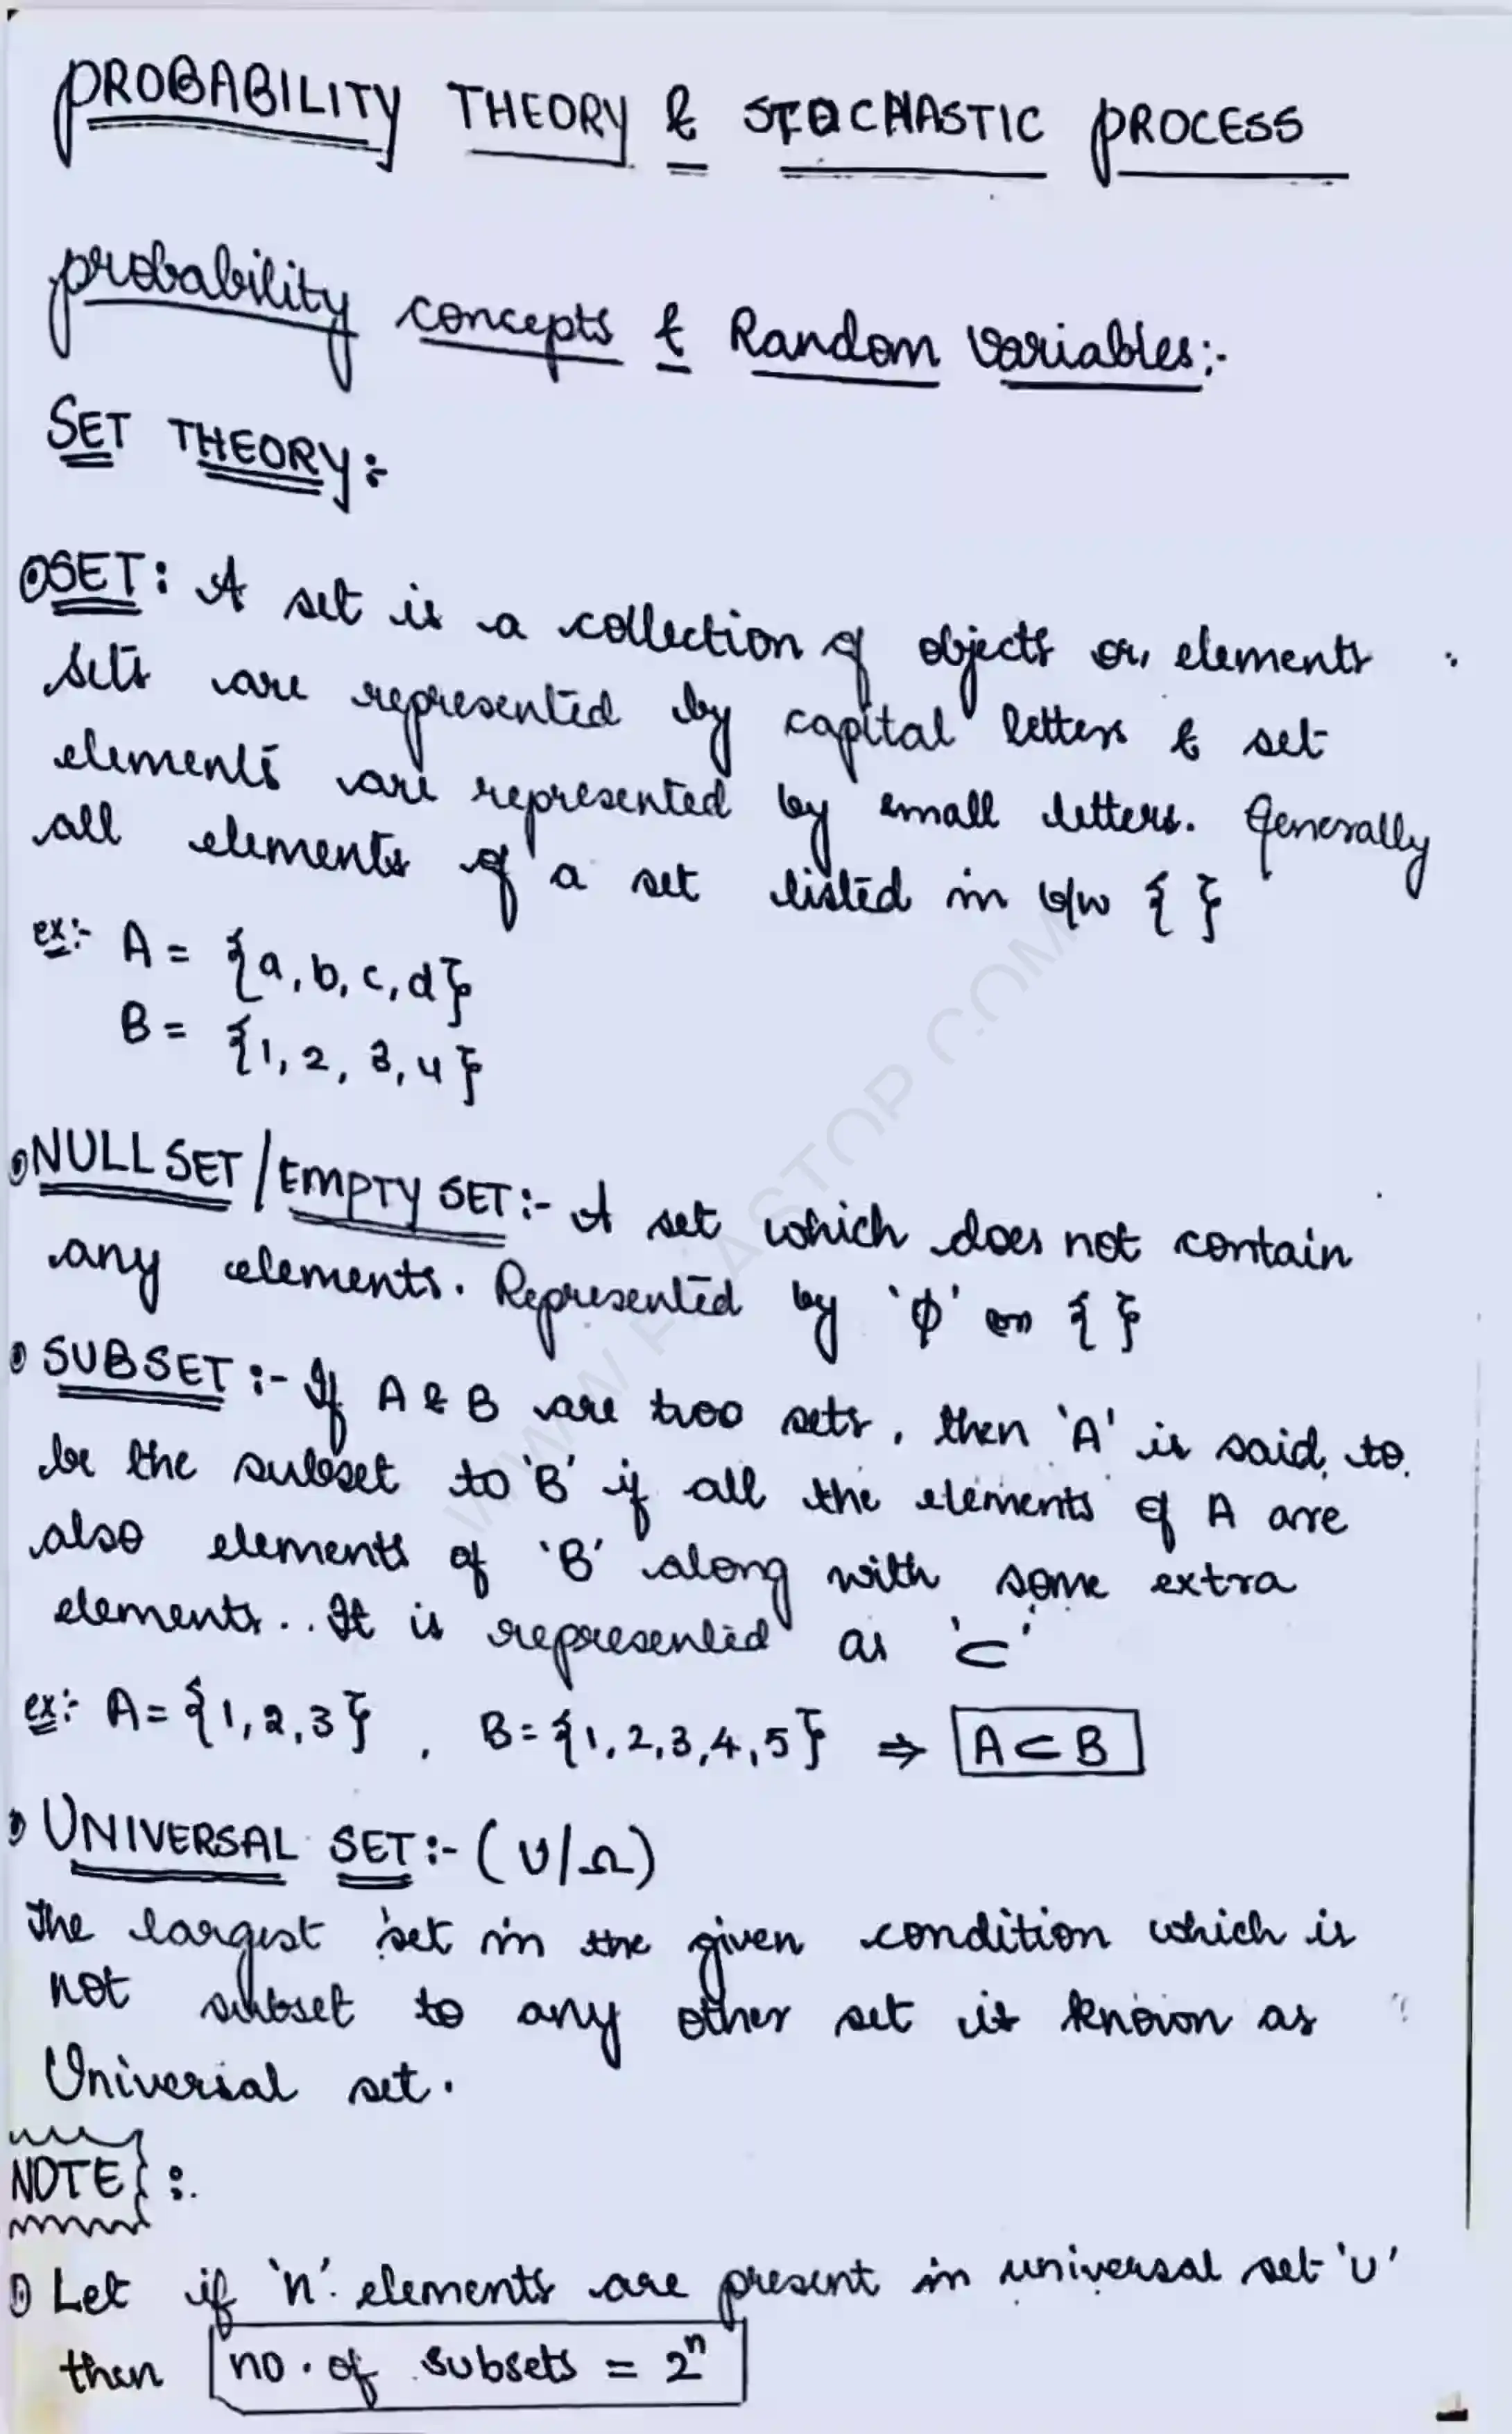 PROBABILITY THEORY & STOCHASTIC PROCESS
probability concepts & Random variables:-
SET THEORY:-
SET: A set is a collection of objects or elements.
sets are represented by capital letters & set
elements are represented by small letters. Generally
all elements of a set listed in b/w { }
ex:- A = {a, b, c, d}
B = {1, 2, 3, 4}
NULL SET / EMPTY SET:- A set which does not contain
any elements. Represented by 'ϕ' or { }
SUBSET:- If A & B are two sets, then 'A' is said to
be the subset to 'B' if all the elements of A are
also elements of 'B' along with some extra
elements.. It is represented as '⊂'
ex:- A = {1, 2, 3}, B = {1, 2, 3, 4, 5} ⇒ A ⊂ B
UNIVERSAL SET:- (U/Ω)
The largest set in the given condition which is
not subset to any other set is known as
Universal set.
NOTE}:.
1) Let if 'n' elements are present in universal set 'U'
then no. of subsets = 2ⁿ
1